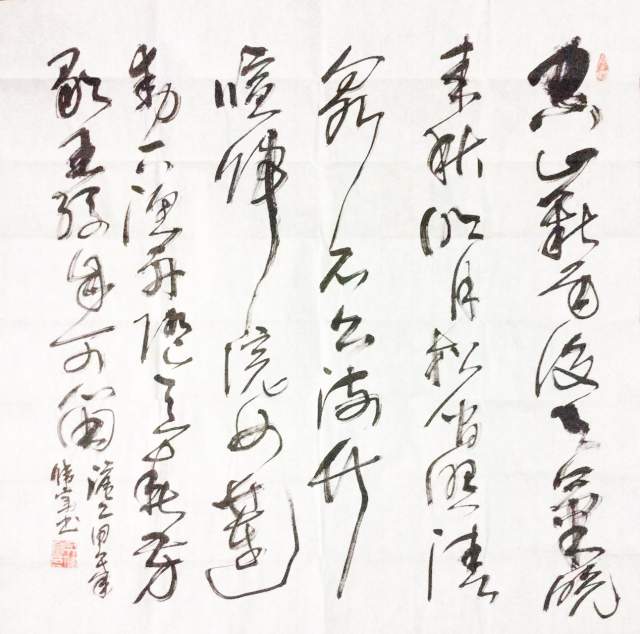 空山新雨後天氣晚
來秋明月松間照清
泉石上流竹
喧歸浣女蓮
動下漁舟隨意春芳
歇王孫自可留